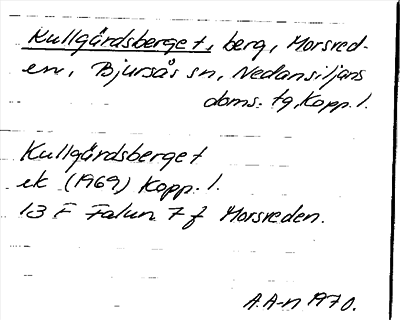 Kullgårdsberget, berg, Morsred-
en, Bjursås sn, Nedansiljans
doms. tg, Kopp. l.
Kullgårdsberget
ek (1969) Kopp. l.
13 F Falun 7 f Morsreden.
A.A-n 1970.